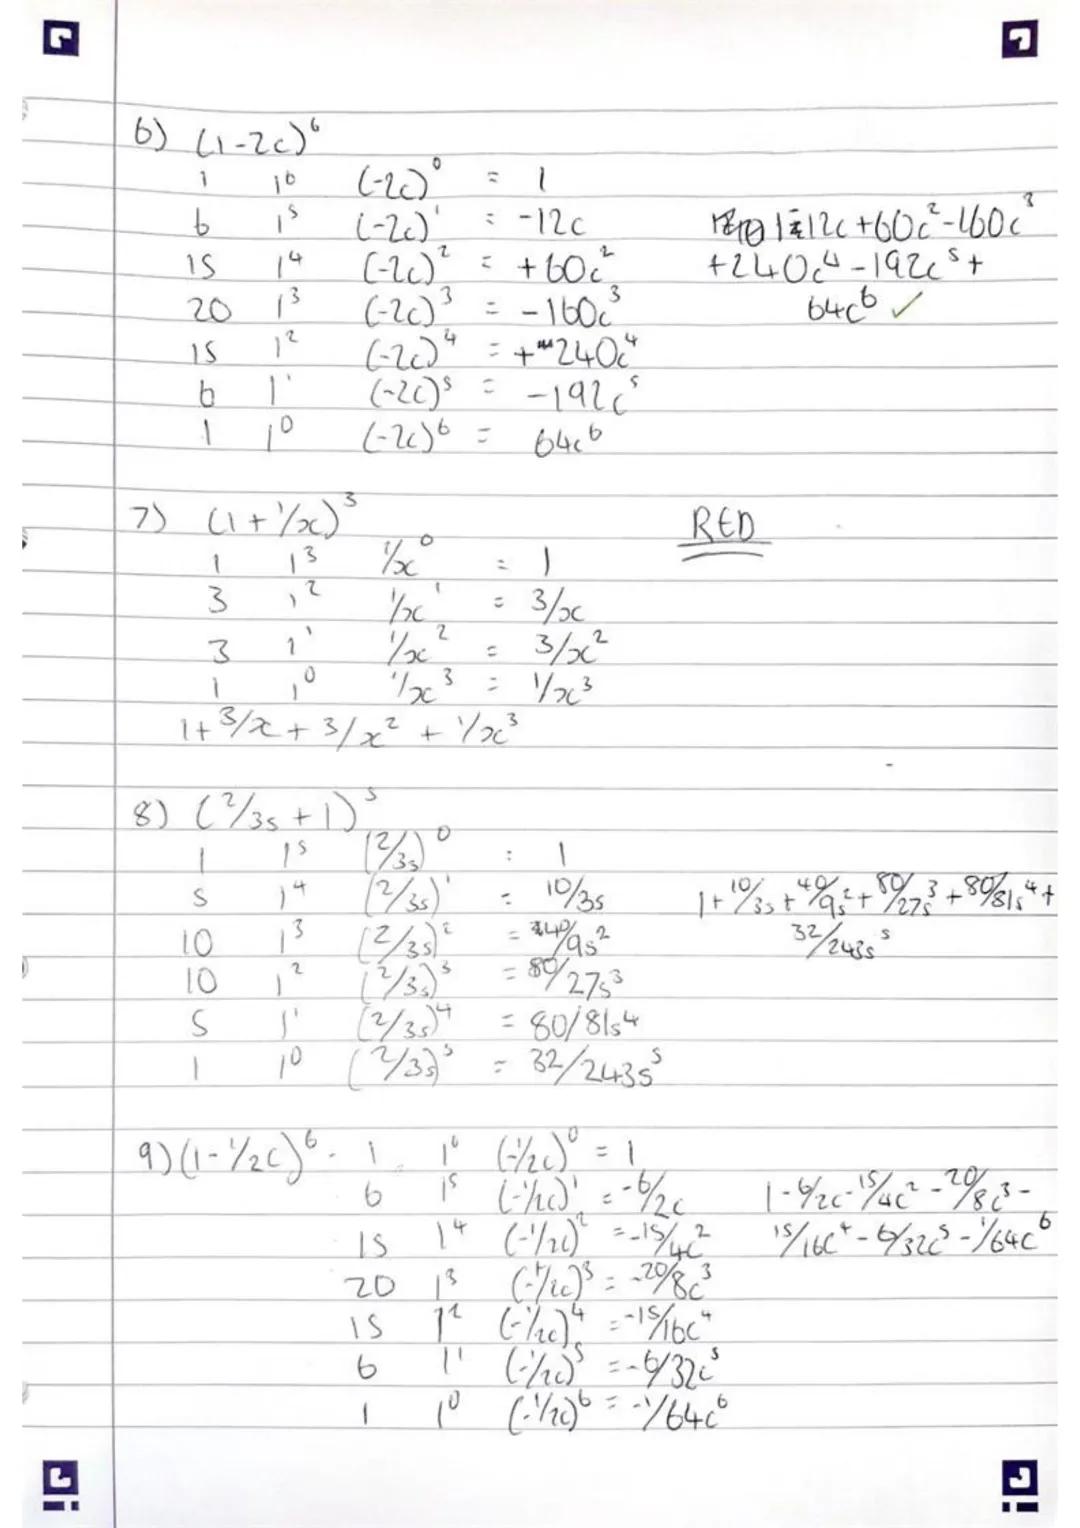 6) (1-2c)^6
1 1^6 (-2c)^0 = 1
6 1^5 (-2c)^1 = -12c
15 1^4 (-2c)^2 = +60c^2
20 1^3 (-2c)^3 = -160c^3
15 1^2 (-2c)^4 = +240c^4
6 1^1 (-2c)^5 = -192c^5
1 1^0 (-2c)^6 = 64c^6
1-12c+60c^2-160c^3
+240c^4-192c^5+
64c^6 ✓
7) (1+1/x)^3
RED
1 1^3 1/x^0 = 1
3 1^2 1/x^1 = 3/x
3 1^1 1/x^2 = 3/x^2
1 1^0 1/x^3 = 1/x^3
1+3/x+3/x^2+1/x^3
8) (2/3s+1)^5
1 1^5 (2/3s)^0 = 1
5 1^4 (2/3s)^1 = 10/3s
10 1^3 (2/3s)^2 = 40/9s^2
10 1^2 (2/3s)^3 = 80/27s^3
5 1^1 (2/3s)^4 = 80/81s^4
1 1^0 (2/3s)^5 = 32/243s^5
1+10/3s+40/9s^2+80/27s^3+80/81s^4+
32/243s^5
9) (1-1/2c)^6 - 1 1^6 (-1/2c)^0 = 1
6 1^5 (-1/2c)^1 = -6/2c
15 1^4 (-1/2c)^2 = -15/4c^2
20 1^3 (-1/2c)^3 = -20/8c^3
15 1^2 (-1/2c)^4 = -15/16c^4
6 1^1 (-1/2c)^5 = -6/32c^5
1 1^0 (-1/2c)^6 = -1/64c^6
1-6/2c-15/4c^2-20/8c^3-
15/16c^4-6/32c^5-1/64c^6